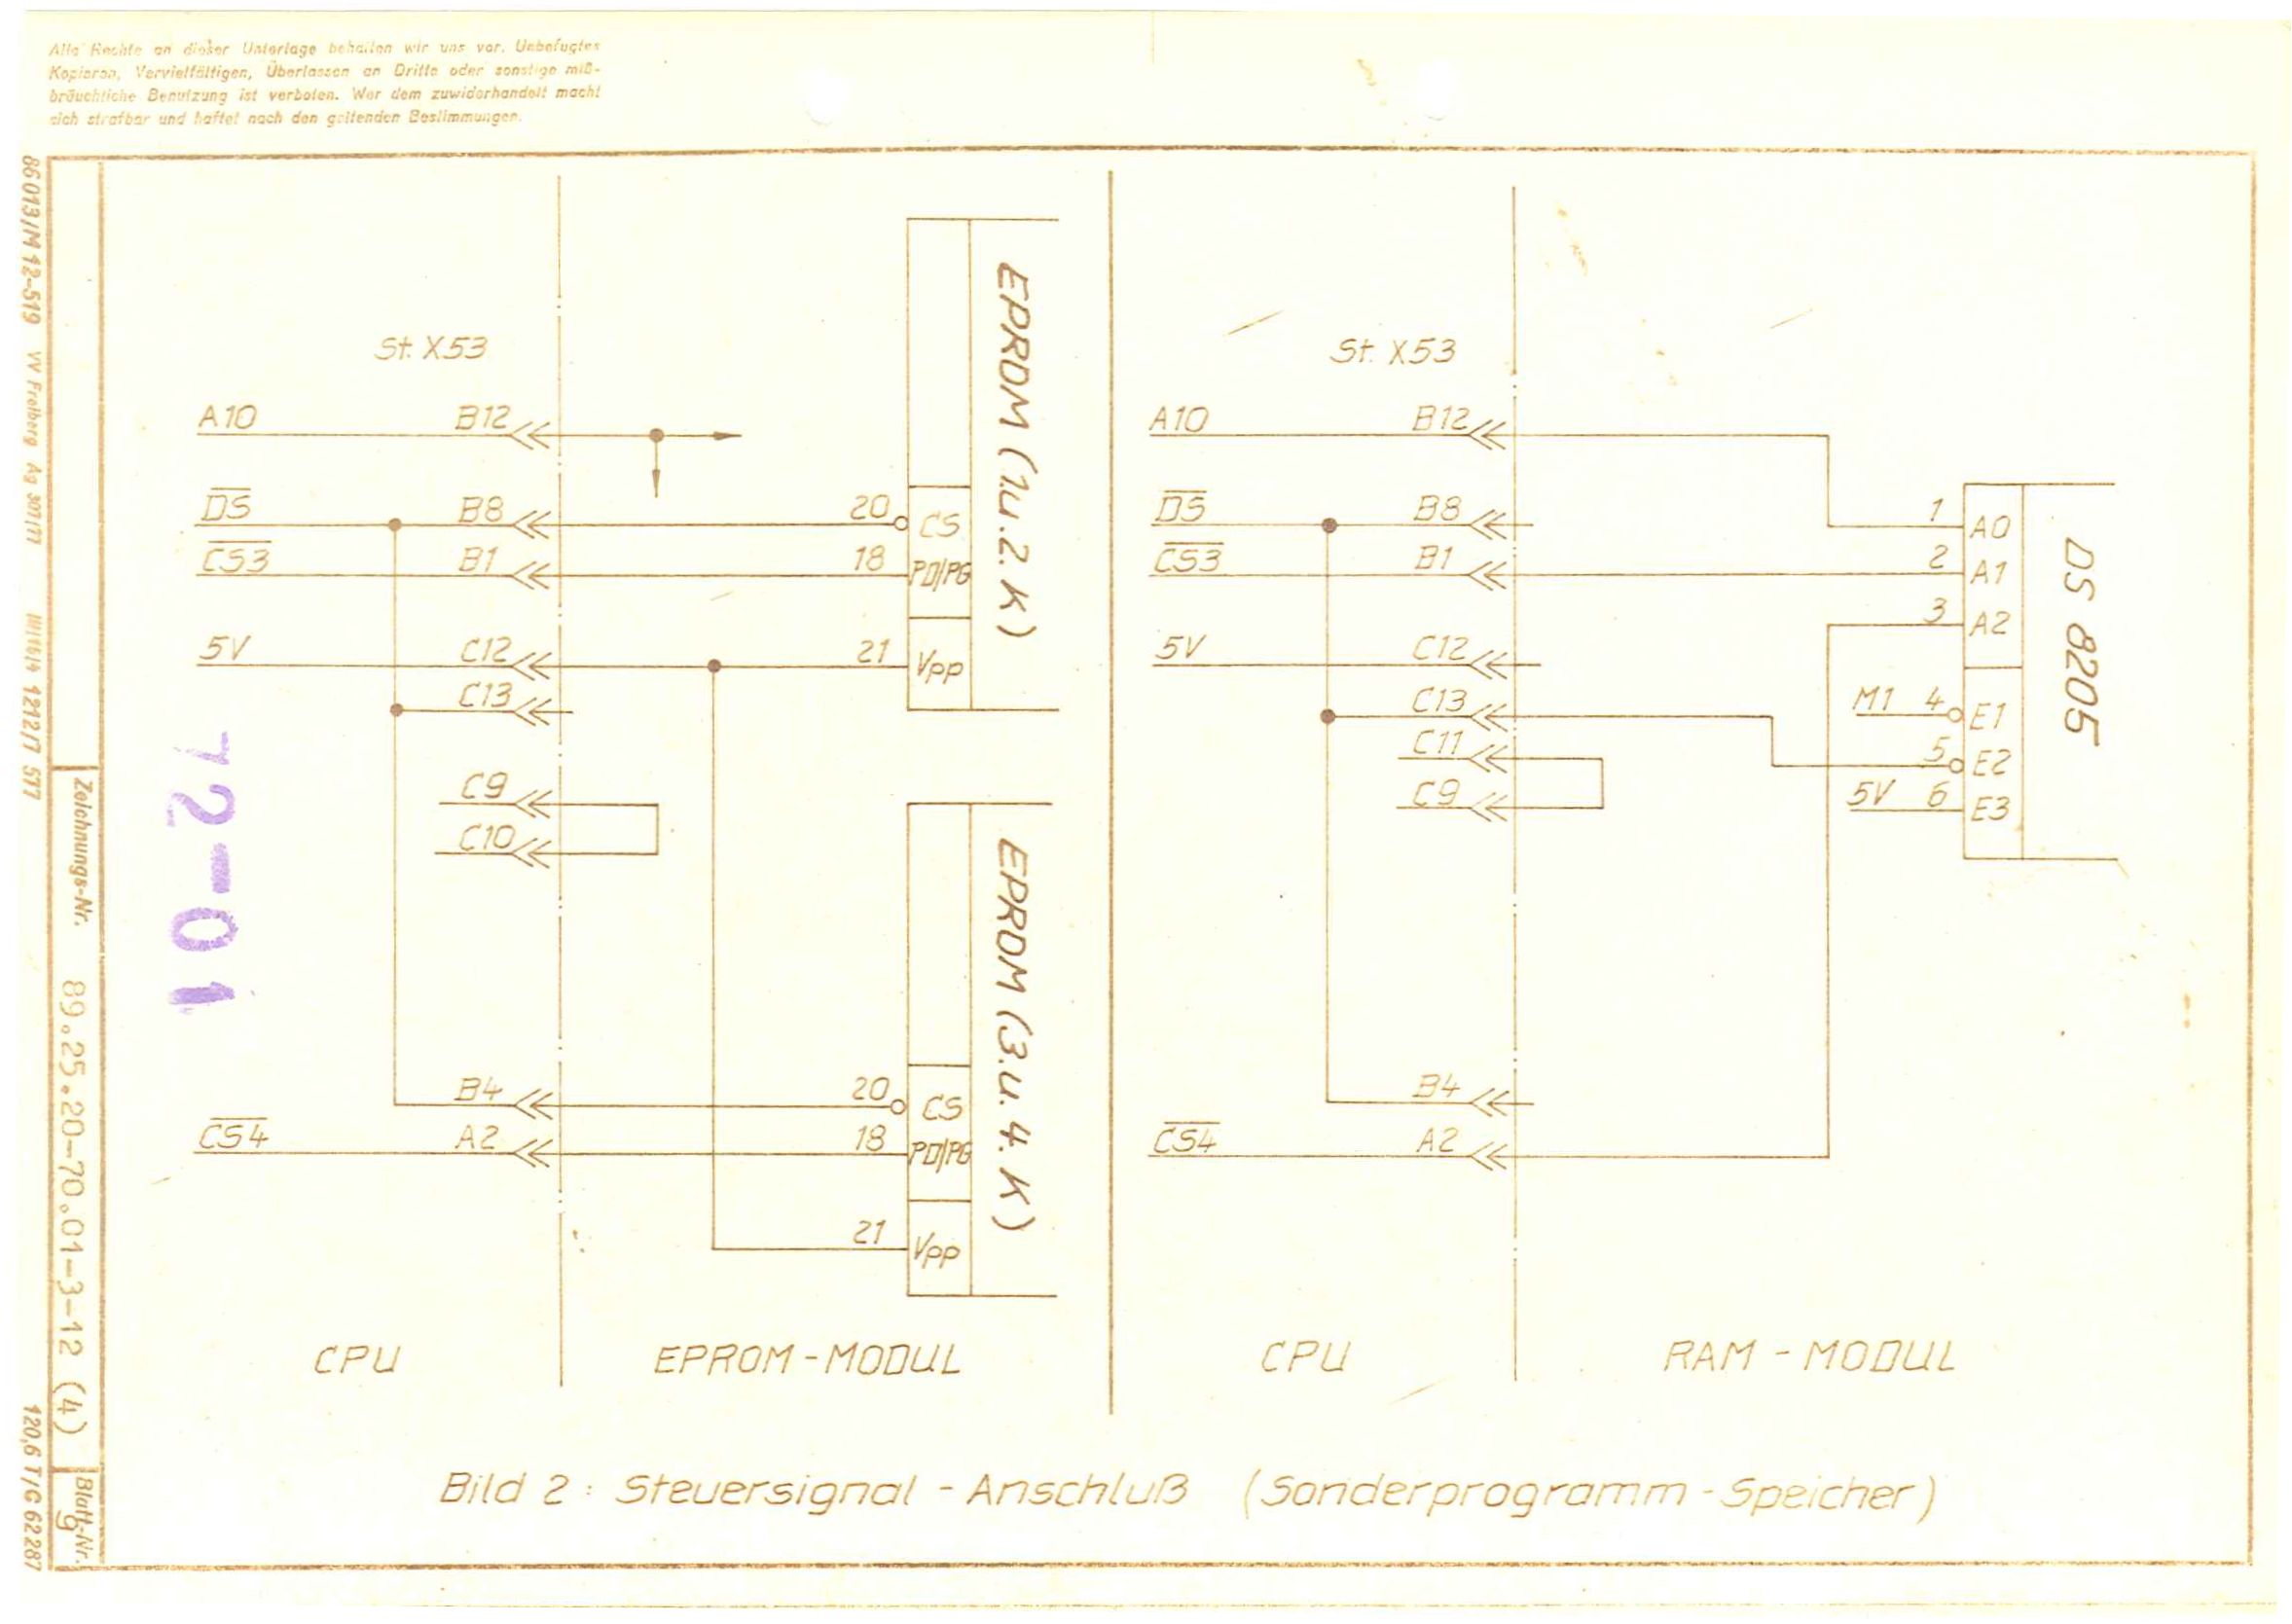 Alle Rechte an dieser Unterlage behalten wir uns vor. Unbefugtes
Kopieren, Vervielfältigen, Überlassen an Dritte oder sonstige miß-
bräuchliche Benutzung ist verboten. Wer dem zuwiderhandelt macht
sich strafbar und haftet nach den geltenden Bestimmungen.
86 013/M 12-519 VV Freiberg Ag 307/77 1212/7 577
120,6 T/G 62287
Zeichnungs-Nr. 89.25.20-70.01-3-12 (4)
Blatt-Nr.
9
72-01
St. X53
A10 B12
DS B8 20 CS
CS3 B1 18 PD/PG
5V C12 21 Vpp
C13
EPROM (1.u.2.K)
C9
C10
B4 20 CS
CS4 A2 18 PD/PG
21 Vpp
EPROM (3.u.4.K)
CPU EPROM-MODUL
St. X53
A10 B12
DS B8 1 A0
CS3 B1 2 A1
3 A2
5V C12
C13 M1 4 E1
C11 5 E2
C9 5V 6 E3
DS 8205
B4
CS4 A2
CPU RAM - MODUL
Bild 2 : Steuersignal - Anschluß (Sonderprogramm - Speicher)